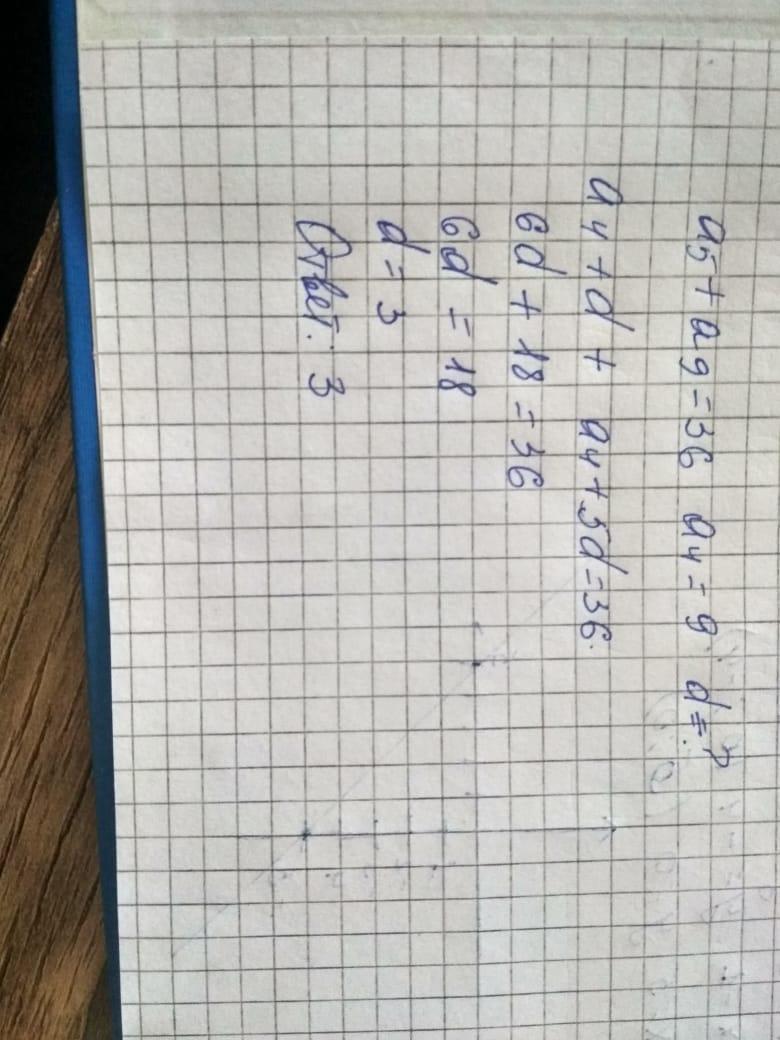 a5 + a9 = 36 a4 = 9 d = ?
a4 + d + a4 + 5d = 36
6d + 18 = 36
6d = 18
d = 3
Ответ: 3